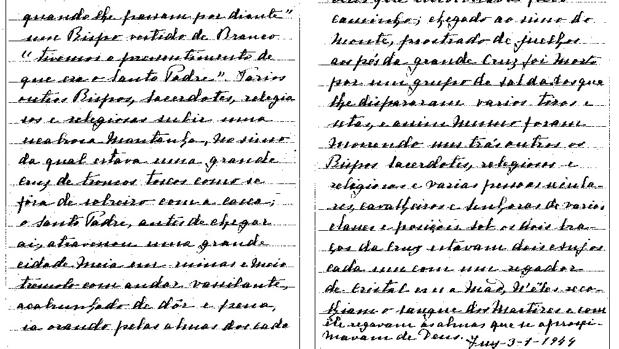 quando lhe passam por diante"
um Bispo vestido de Branco
"tivemos o pressentimento de
que era o Santo Padre". Varios
outros Bispos, Sacerdotes, religio
sos e religiosas subir uma
escabrosa montanha, no simo
da qual estava uma grande
cruz de troncos toscos como se
fôra de sobreiro com a casca;
o Santo Padre, antes de chegar
aí, atravessou uma grande
cidade meia em ruinas e meio
tremulo com andar vacilante,
acabrunhado de dôr e pena,
ia orando pelas almas dos cada
caminho; chegado ao simo do
monte, prostrado de juelhos
aos pés da grande Cruz foi morto
por um grupo de soldados que
lhe dispararam varios tiros e
setas, e assim mesmo foram
morrendo uns trás outros os
Bispos Sacerdotes, religiosos e
religiosas e varias pessoas secula-
res, cavalheiros e senhoras de varias
classes e posições. Sob os dois bra-
ços da Cruz estavam dois Anjos
cada um com um regador
de cristal em a mão, n'êles reco-
lhiam o sangue dos Martires e com
êle regavam as almas que se aproxi-
mavam de Deus.
Tuy-3-1-1944